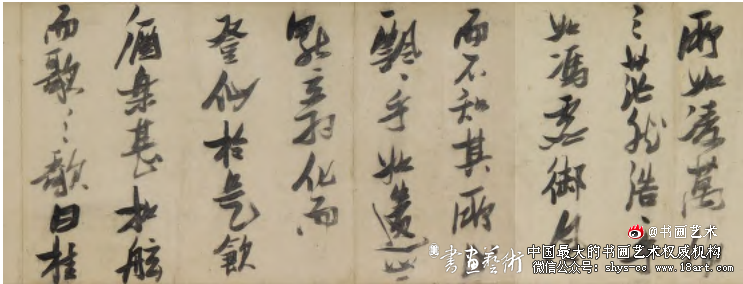 所如凌萬
之茫然浩
如馮虛御
而不知其所
飄〻乎如遺世
獨立羽化而
登仙於是飲
酒樂甚扣舷
而歌之歌曰桂
@书画艺术
書畫藝術
中国最大的书画艺术权威机构
微信公众号：shys-cc www.18art.com